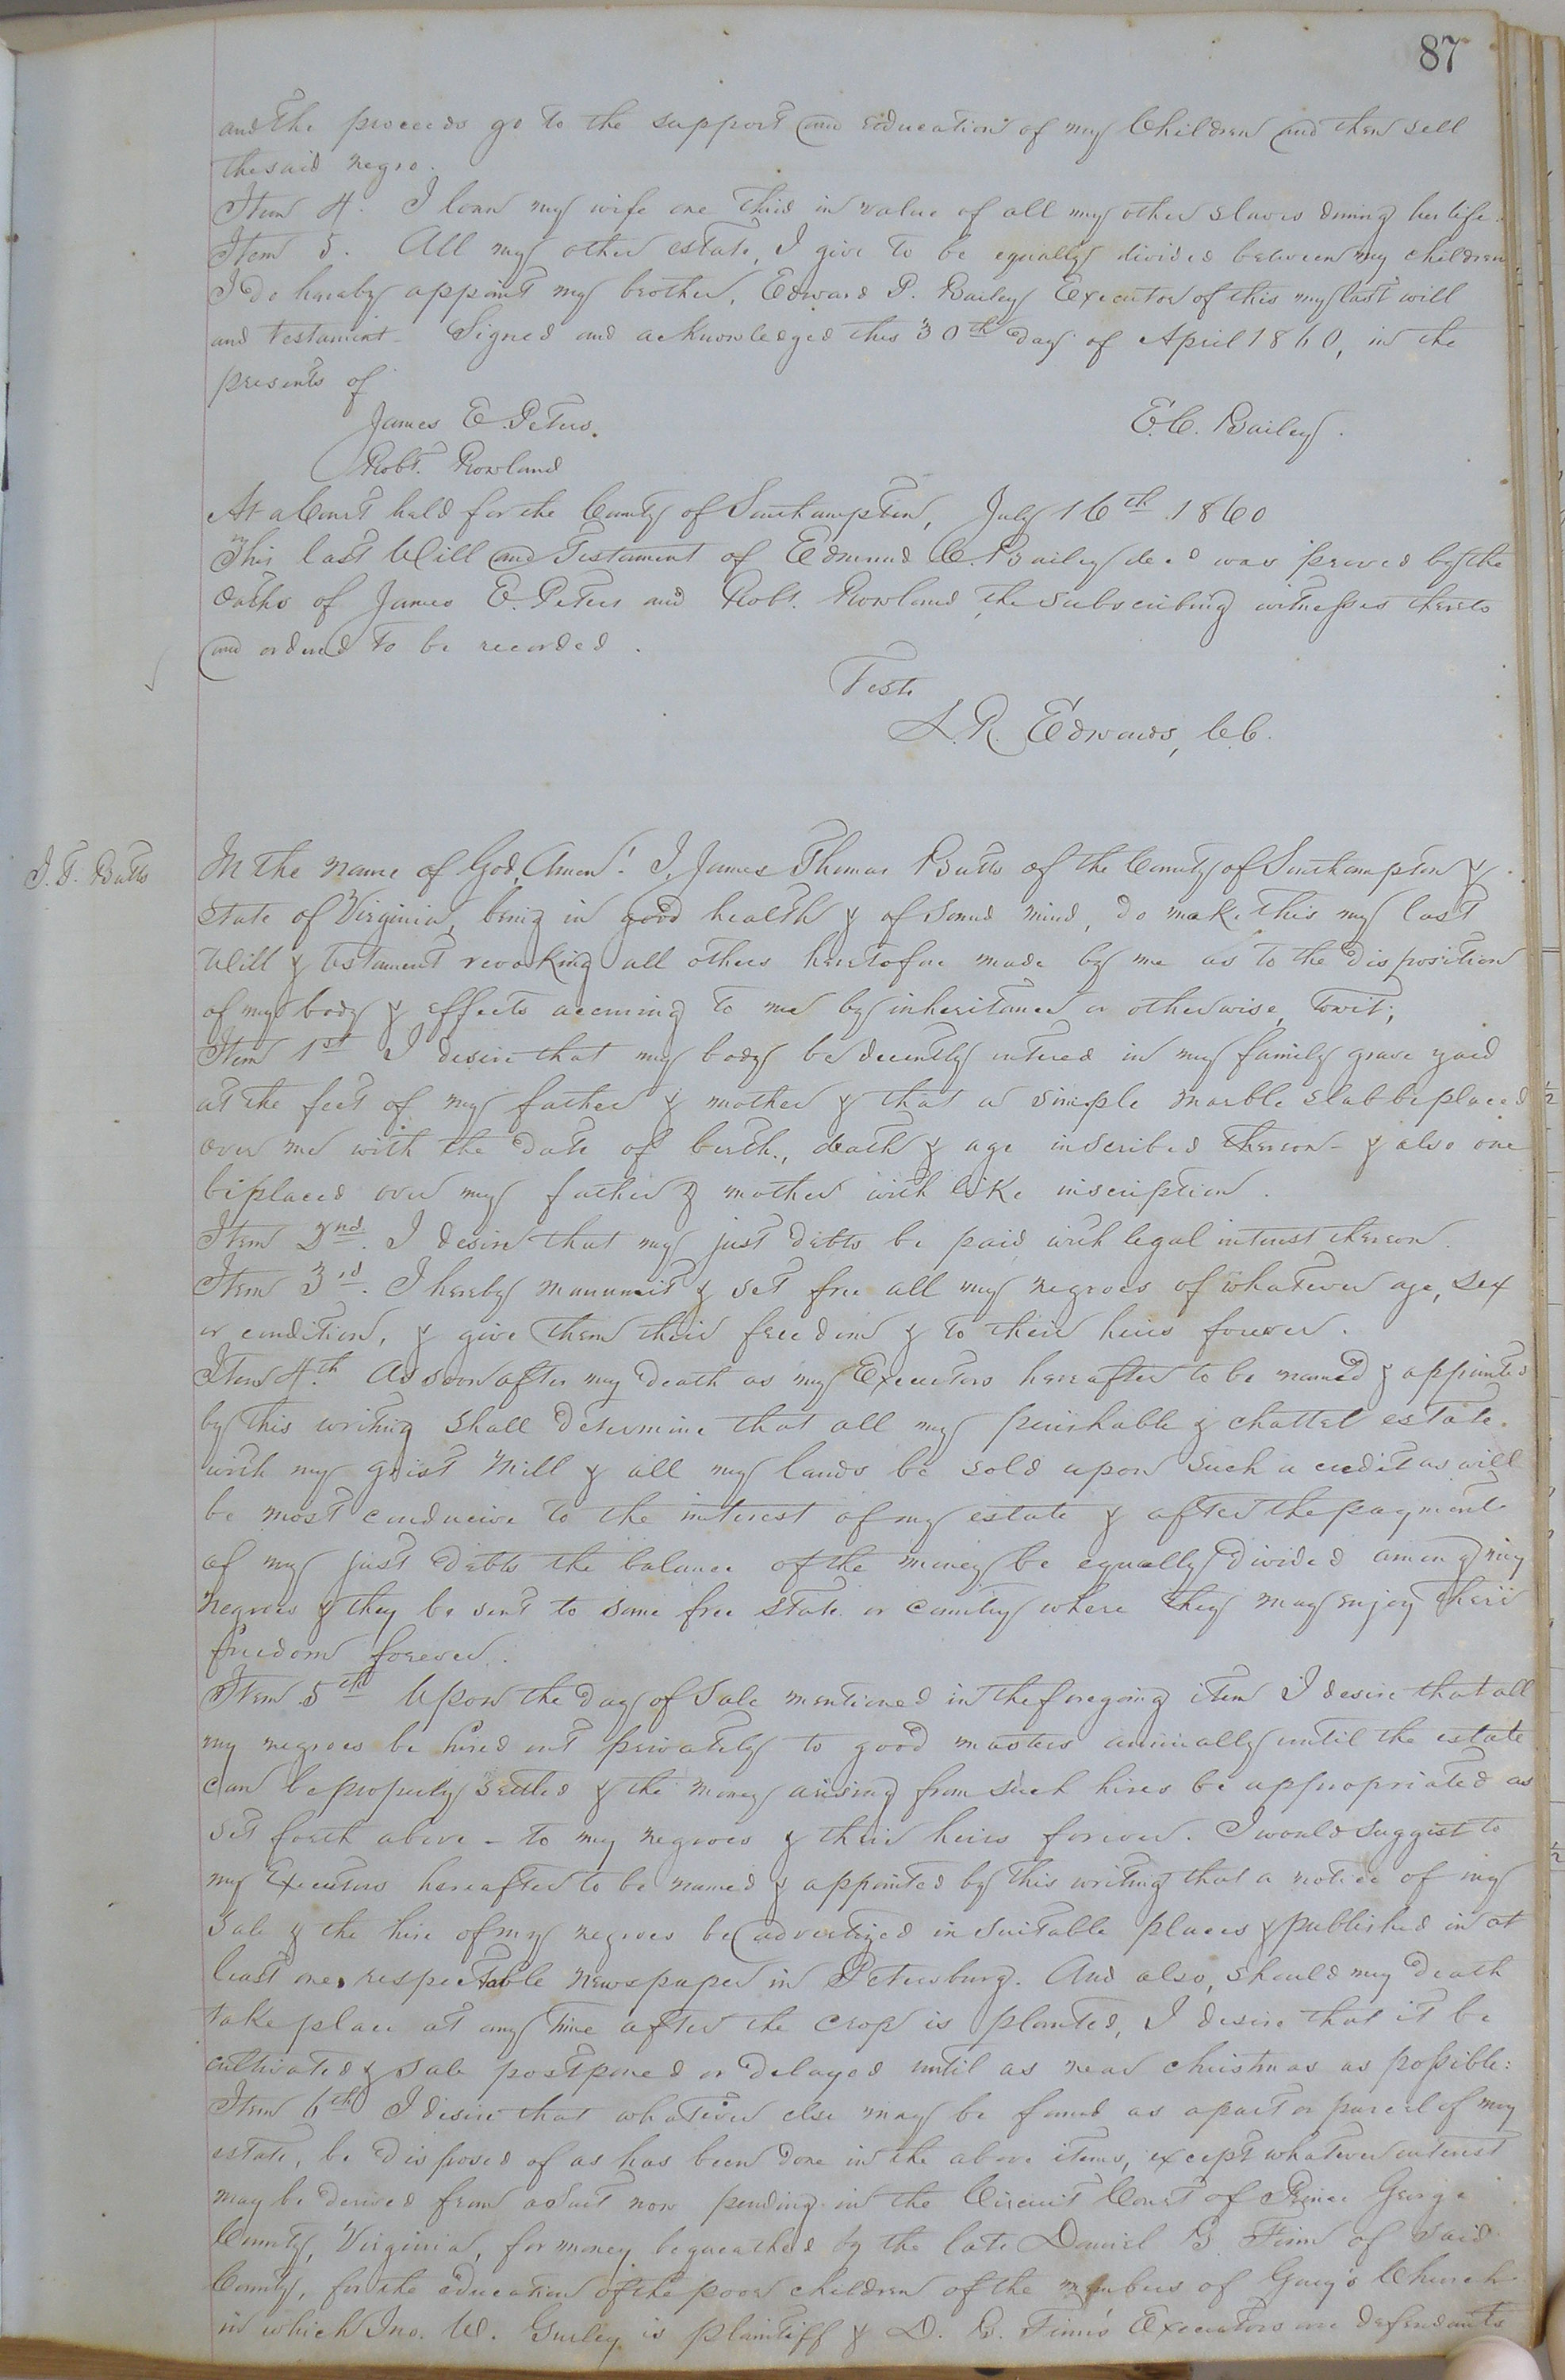 87
and the proceeds go to the support and education of my Children and then sell
the said negro.
Item 4. I loan my wife one third in value of all my other slaves during her life.
Item 5. All my other estate, I give to be equally divided between my children,
I do hereby appoint my brother, Edward P. Bailey Executor of this my last will
and testament - Signed and acknowledged this 30th day of April 1860, in the
presents of
James E. Peters.
E. C. Bailey.
Robt. Rowland
At a Court held for the County of Southampton, July 16th 1860
This last Will and Testament of Edmund C. Bailey decd was proved by the
Oaths of James E. Peters and Robt. Rowland, the subscribing witnesses thereto
and ordered to be recorded.
Teste
L. R. Edwards, C.C.
J. T. Butts
In the name of God, Amen! I, James Thomas Butts of the County of Southampton &
State of Virginia, being in good health & of sound mind, do make this my last
Will & testament revoking all others heretofore made by me as to the disposition
of my body & effects accruing to me by inheritance or otherwise, towit;
Item 1st I desire that my body be decently intered in my family grave yard
at the feet of my father & mother & that a simple marble slab be placed
over me with the date of birth, death & age inscribed thereon - & also one
be placed over my father & mother with like inscription.
Item 2nd. I desire that my just debts be paid with legal interest thereon.
Item 3rd. I hereby manumit & set free all my negroes of whatever age, sex
or condition, & give them their freedom & to their heirs forever.
Item 4th. As soon after my death as my Executors hereafter to be named & appointed
by this writing shall determine that all my perishable & chattel estate.
with my grist Mill & all my lands be sold upon such a credit as will
be most conducive to the interest of my estate & after the payment
of my just debts the balance of the money be equally divided among my
Negroes & they be sent to some free State or country where they may enjoy their
freedom forever.
Item 5th Upon the day of Sale mentioned in the foregoing item I desire that all
my negroes be hired out privately to good masters annually until the estate
can be properly settled & the money arising from such hires be appropriated as
set forth above - to my negroes & their heirs forever. I would suggest to
my Executors hereafter to be named & appointed by this writing that a notice of my
Sale & the hire of my negroes be advertized in suitable places & published in at
least one respectable Newspaper in Petersburg. And also, should my death
take place at any time after the crop is planted, I desire that it be
cultivated & sale postponed or delayed until as near christmas as possible:
Item 6th I desire that whatever else may be found as a part or parcel of my
estate, be disposed of as has been done in the above items, except whatever interest
may be derived from a suit now pending in the Circuit Court of Prince George
County, Virginia, for money bequeathed by the late Daniel G. Finn of said
County, for the education of the poor children of the members of Gary's Church
in which Jno. W. Gurley is plaintiff & D. G. Finn's Executors are defendants